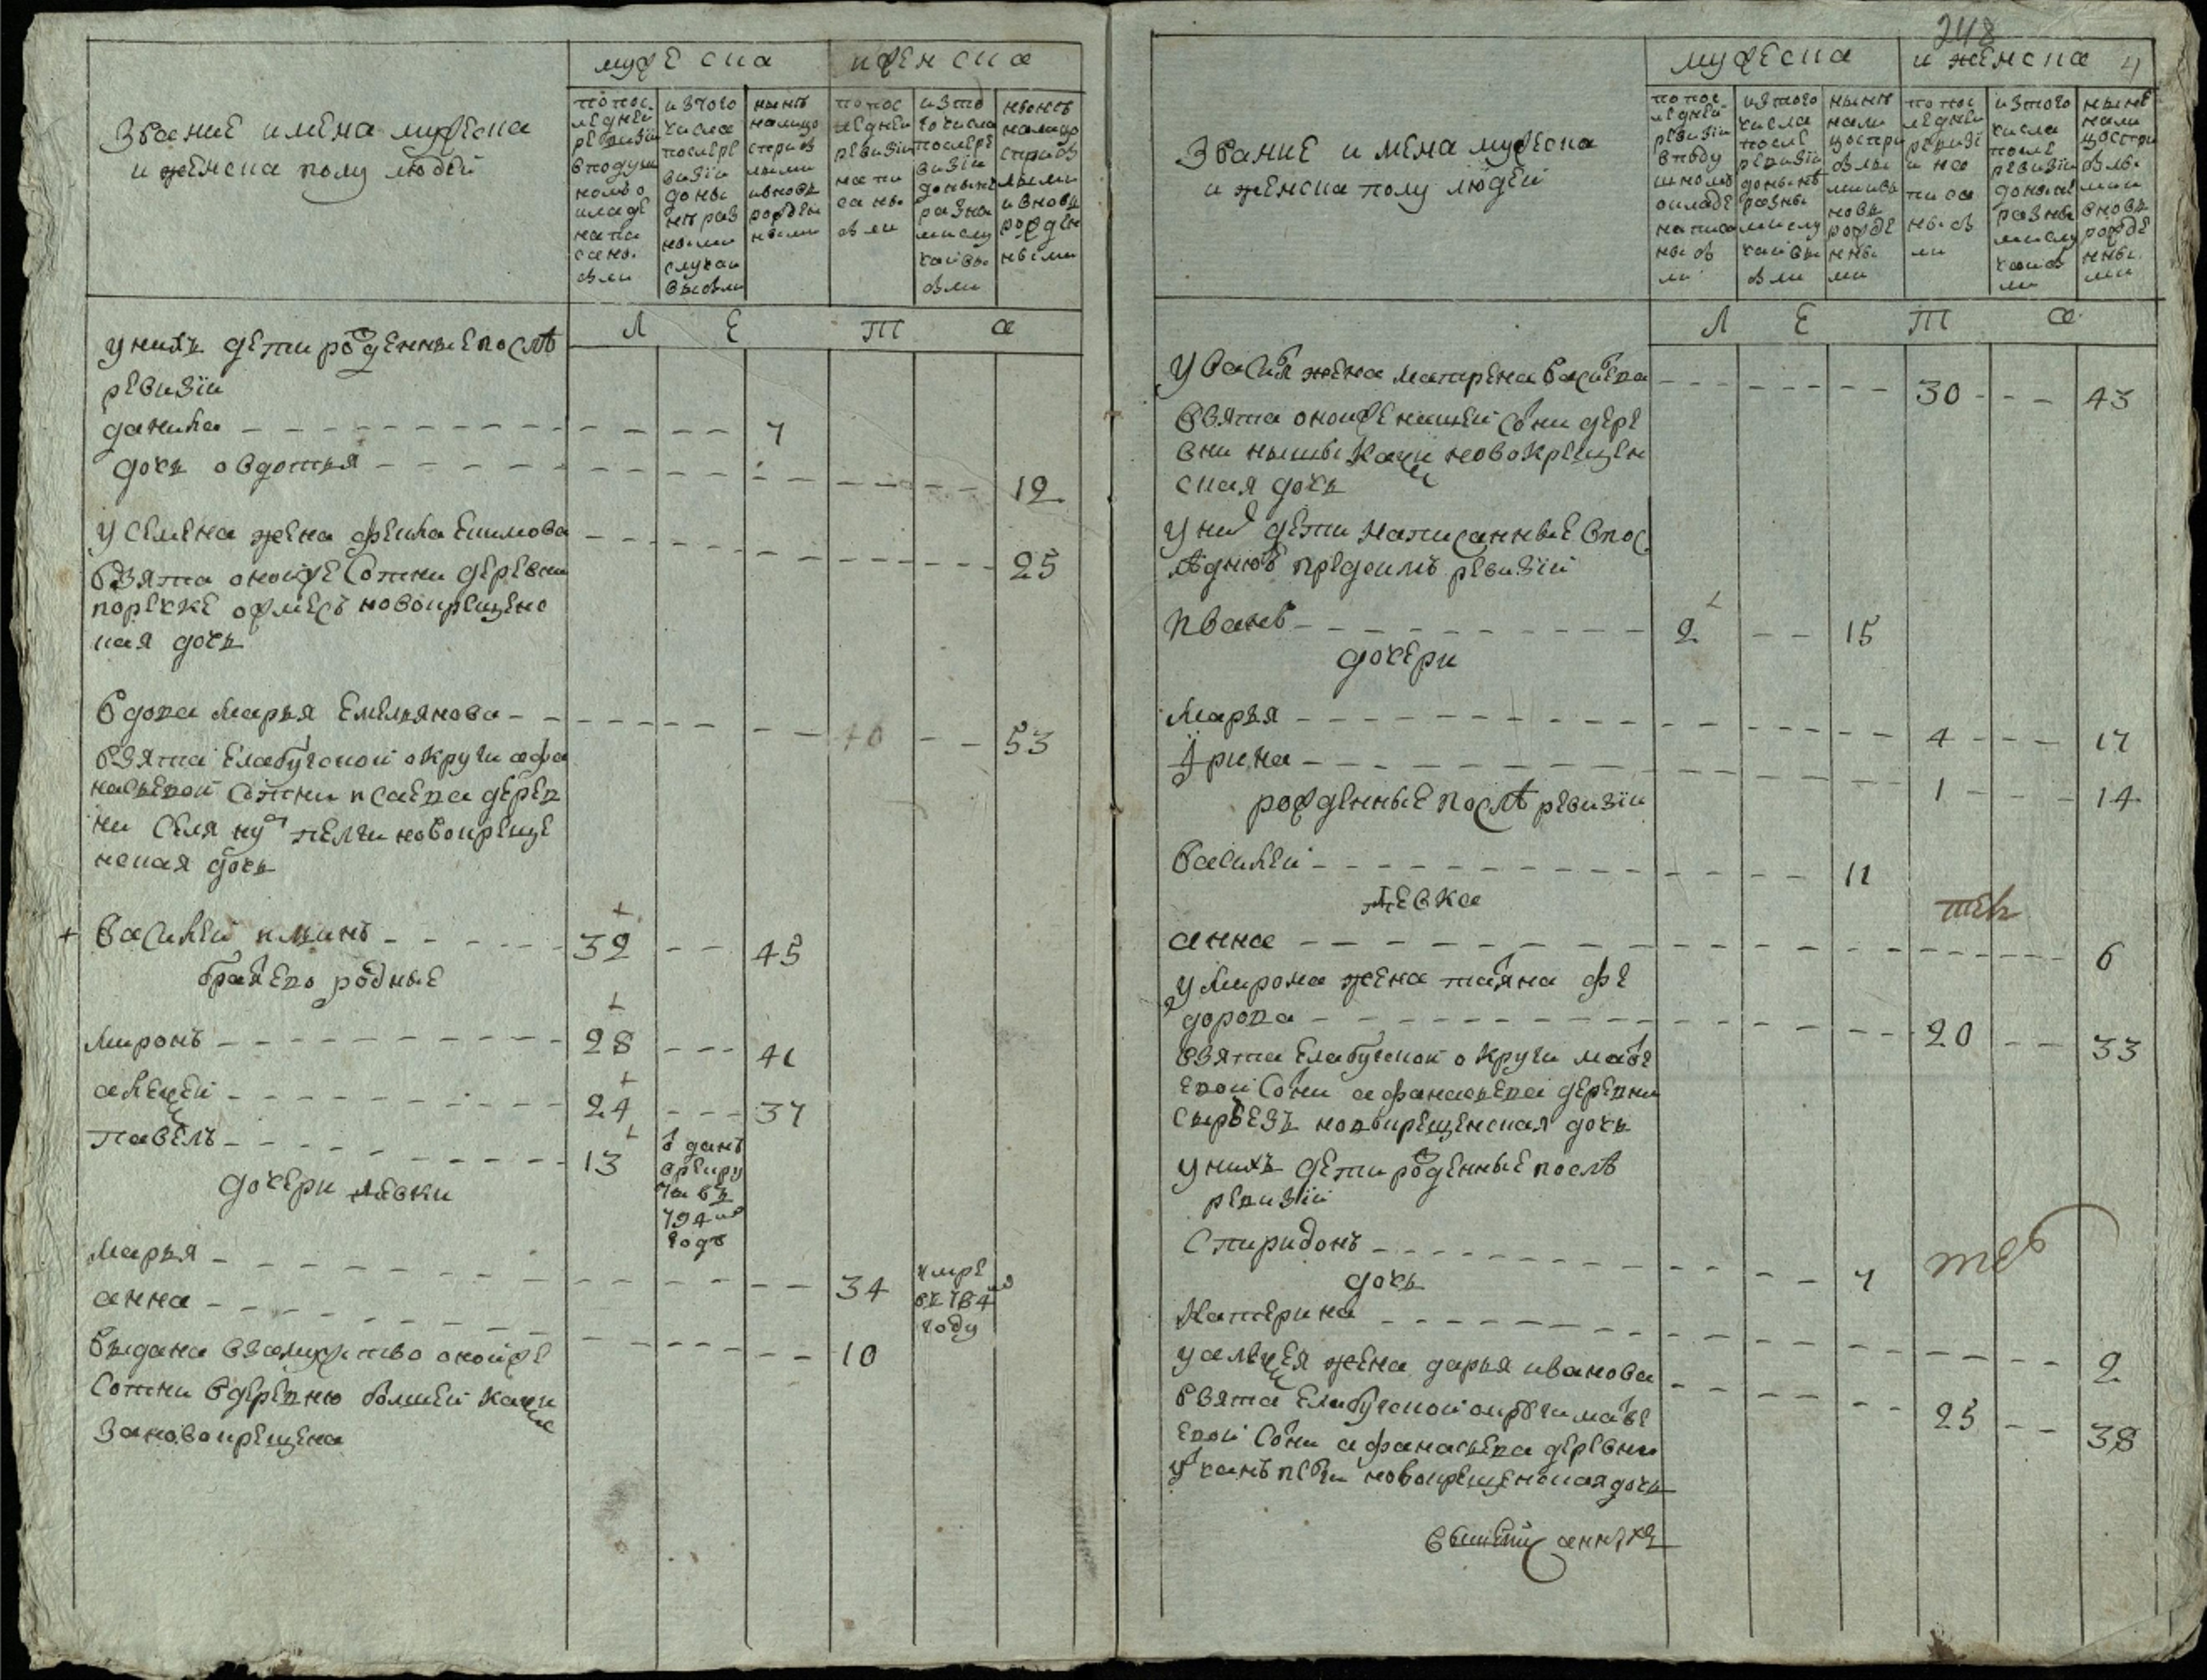 Званiе и мена мужеска
и женска полу людей
мужеска
и женска
по пос
ледней
ревизiи
в подуш
ном о
кладе
напи
сано
были
из того
числа
после ре
визiи
до ны
не раз
ными
случаи
выбыли
ныне
налицо
с прибы
лыми
и вновь
рожден
ными
по пос
ледней
ревизiи
напи
саны
были
из то
го числа
после ре
визiи
до ныне
разны
ми слу
чаи вы
были
ныне
налицо
с прибы
лыми
и вновь
рожден
ными
Л Е Т А
у нихъ дети рожденные послѣ
ревизiи
данила 7
дочь овдотья 12
у семена жена фекла Екимова 25
взята оной же сотни деревни
новокрещенс
кая дочь
вдова марья Емельянова 40 53
взята Елабугской округи афа
насьевой сотни исаева дерев
ни новокреще
нская дочь
+ василей ильинъ 32 45
братья ево родные
миронъ 28 41
алексей 24 37
павелъ 13
отданъ
в рекру
ты въ
794 мъ
годъ
дочери девки
марья 34
умре
въ 784 мъ
году
анна 10
выдана взамужство оной же
сотни в деревню болшей качки
за новокрещена
248
4
Званiе и мена мужеска
и женска полу людей
мужеска
и женска
по пос
ледней
ревизiи
в поду
шномъ
окладе
написа
ны бы
ли
из того
числа
после
ревизiи
до ныне
разны
ми слу
чаи вы
были
ныне
нали
цо с при
былы
ми и в
новь
рожде
нны
ми
по пос
ледней
ревизi
и на
писа
ны бы
ли
из того
числа
после
ревизiи
до ныне
разны
ми слу
чаи бы
ли
ныне
нали
цо с при
былы
ми и
вновь
рожде
нны
ми
Л Е Т А
у василья жена матрена васильева 30 43
взята оной же нашей сотни дере
вни новокрещен
ская дочь
у них дети написанные в пос
ледною пред симъ ревизiи
иванъ 2 15
дочери
марья 4 17
Ирина 1 14
рожденные послѣ ревизiи
василей 11
девка
анна 6
у мирона жена татьяна фе
дорова 20 33
взята Елабугской округи матве
евой сотни афанасьева деревни
новокрещенская дочь
у нихъ дети рожденные послѣ
ревизiи
Спиридонъ 7
дочь
Катерина 2
у алексея жена дарья иванова 25 38
взята Елабугской округи матве
евой сотни афанасьева деревни
новокрещенская дочь